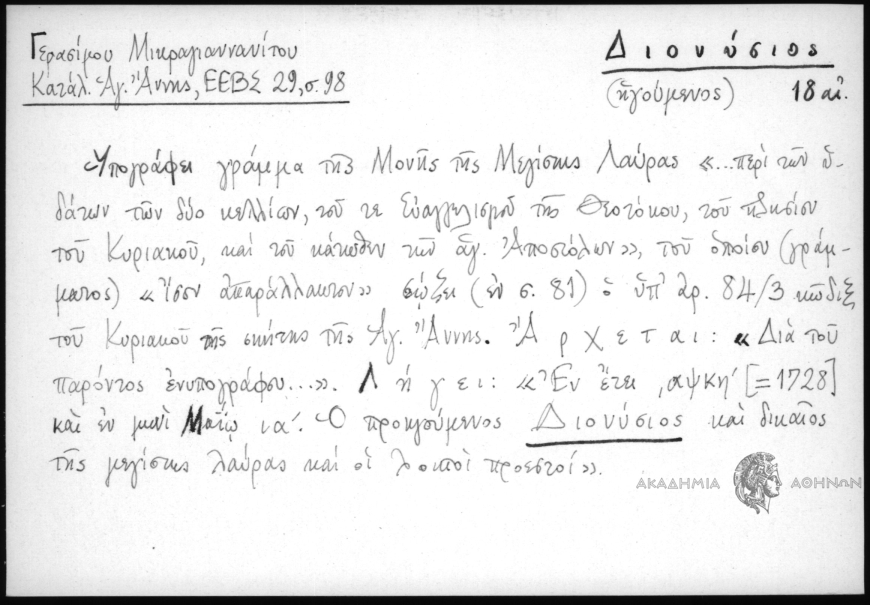 Γερασίμου Μικραγιαννανίτου
Κατάλ. Ἁγ. Ἄννης, ΕΕΒΣ 29, σ. 98
Διονύσιος
(ἡγούμενος) 18 αἰ.
Ὑπογράφει γράμμα τῆς Μονῆς τῆς Μεγίστης Λαύρας «...περὶ τῶν ὑ-
δάτων τῶν δύο κελλίων, τοῦ τε Εὐαγγελισμοῦ τῆς Θεοτόκου, τοῦ πλησίον
τοῦ Κυριακοῦ, καὶ τοῦ κάτωθεν τῶν ἁγ. Ἀποστόλων», τοῦ ὁποίου (γράμ-
ματος) «ἴσον ἀπαράλλακτον» σῴζει (ἐν σ. 81) ὁ ὑπ' ἀρ. 84/3 κῶδιξ
τοῦ Κυριακοῦ τῆς σκήτης τῆς Ἁγ. Ἄννης. Ἄρχεται: «Διὰ τοῦ
παρόντος ἐνυπογράφου...». Λήγει: «Ἐν ἔτει ͵αψκη' [=1728]
καὶ ἐν μηνὶ Μαΐῳ ια'. Ὁ προηγούμενος Διονύσιος καὶ δικαῖος
τῆς μεγίστης λαύρας καὶ οἱ λοιποὶ προεστοί».
ΑΚΑΔΗΜΙΑ ΑΘΗΝΩΝ